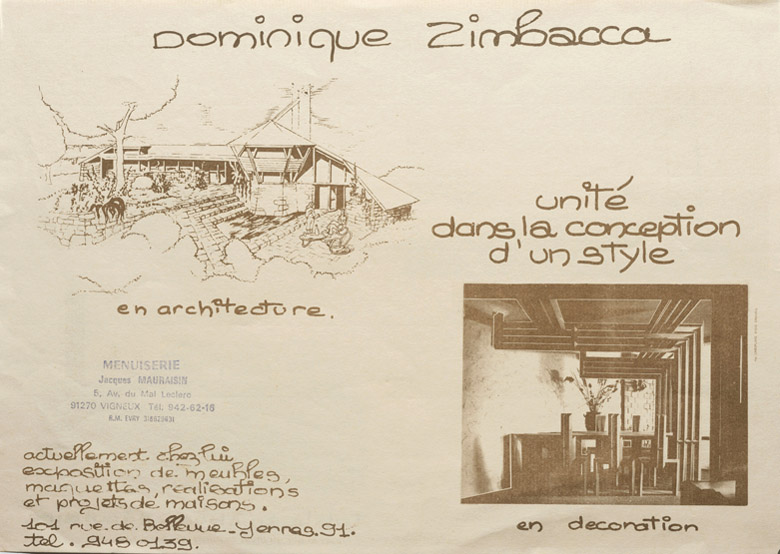 Dominique Zimbacca
unité
dans la conception
d'un style
en architecture.
MENUISERIE
Jacques MAURAISIN
5, Av. du Mal Leclerc
91270 VIGNEUX Tél. 942-62-16
actuellement chez lui
exposition de meubles,
maquettes, réalisations
et projets de maisons.
101 rue de Bellevue - Yerres. 91.
tel. 948 0139.
en decoration